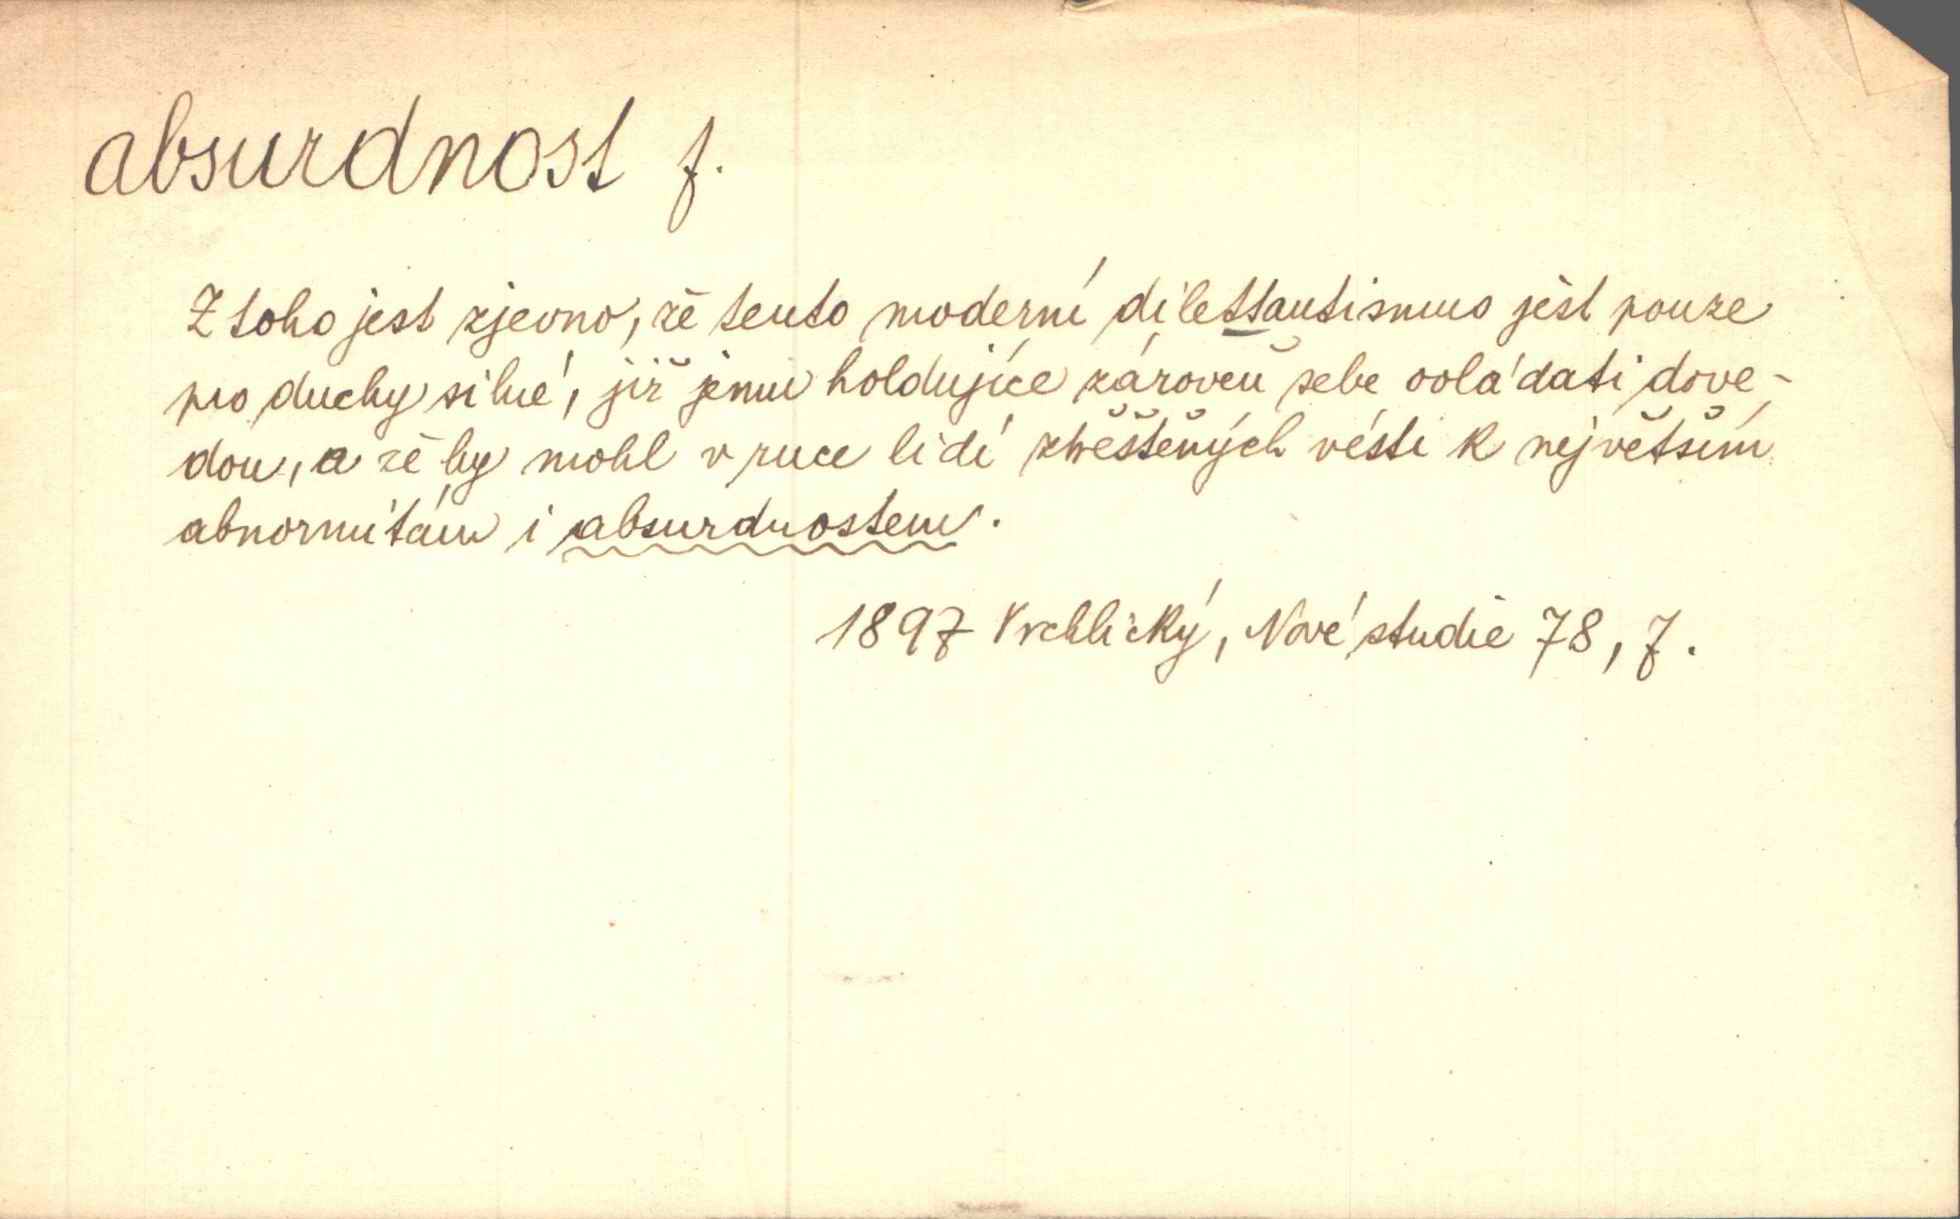 absurdnost f.
Z toho jest zjevno, že tento moderní dilettantismus jest pouze
pro duchy silné, již jemu holdujíce zároveň sebe ovládati dove-
dou, a že by mohl v ruce lidí ztřeštěných vésti k největším
abnormitám i absurdnostem.
1897 Vrchlický, Nové studie 78, 7.